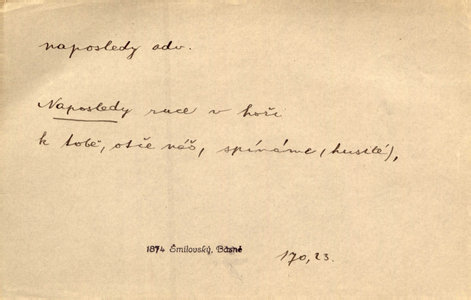 naposledy adv.
Naposledy ruce v hoři
k tobě, otče náš, spínáme, (husité),
1874 Šmilovský, Básně
170, 23.